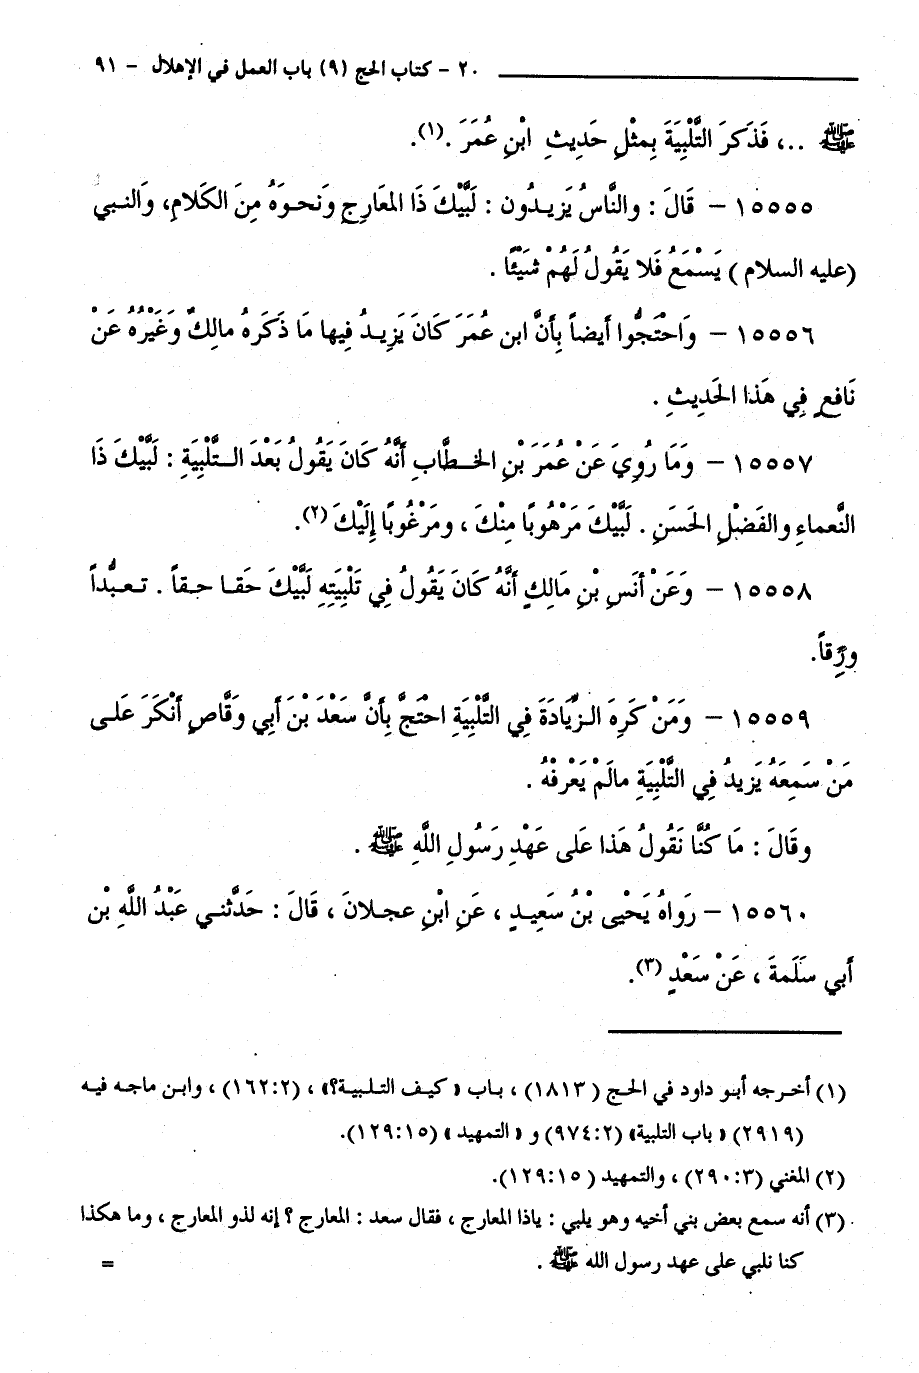 ٢٠ - كتاب الحج (٩) باب العمل في الإهلال - ٩١
ﷺ ..، فَذَكَرَ التَّلْبِيَةَ بِمثْلِ حَدِيثِ ابْنِ عُمَرَ .(١).
١٥٥٥٥ - قَالَ : والنَّاسُ يَزِيدُون : لَبَّيْكَ ذَا المَعارِجِ وَنَحوَهُ مِنَ الكَلامِ، وَالنبي
(عليه السلام) يَسْمَعُ فَلا يَقُولُ لَهُمْ شَيْئًا .
١٥٥٥٦ - وَاحْتَجُّوا أيضاً بِأَنَّ ابن عُمَرَ كَانَ يَزِيدُ فِيها مَا ذَكَرَهُ مالِكٌ وَغَيْرُهُ عَنْ
نَافِعٍ فِي هَذا الحَدِيثِ .
١٥٥٥٧ - وَمَا رُوِيَ عَنْ عُمَرَ بْنِ الخطَّابِ أنَّهُ كَانَ يَقُولُ بَعْدَ التَّلْبِيَةِ : لَبَّيْكَ ذَا
النَّعماءِ والفَضْلِ الحَسَنِ . لَبَّيْكَ مَرْهُوبًا مِنْكَ ، ومَرْغُوبًا إِلَيْكَ (٢).
١٥٥٥٨ - وَعَنْ أنَسِ بْنِ مَالِكٍ أنَّهُ كَانَ يَقُولُ فِي تَلْبِيَتِهِ لَبَّيْكَ حَقا حقاً . تعبُّداً
ورِّقاً.
١٥٥٥٩ - وَمَنْ كَرِهَ الزِّيَادَةَ فِي التَّلْبِيَةِ احْتَجَّ بِأَنَّ سَعْدَ بْنَ أَبِي وقَّاصٍ أَنْكَرَ عَلى
مَنْ سَمِعَهُ يَزِيدُ فِي التَّلْبِيَةِ مالَمْ يَعْرِفْهُ .
وقَالَ : مَا كُنَّا نَقُولُ هَذا عَلى عَهْدِ رَسُولِ اللَّهِ ﷺ .
١٥٥٦٠ - رَواهُ يَحْيى بْنُ سَعِيدٍ ، عَنِ ابْنِ عجلانَ ، قَالَ : حَدَّثني عَبْدُ اللَّهِ بْن
أَبي سَلَمةَ ، عَنْ سَعْدٍ (٣).
(١) أخرجه أبو داود في الحج ( ١٨١٣) ، باب « كيف التلبية؟» ، (١٦٢:٢) ، وابن ماجه فيه
(٢٩١٩) « باب التلبية» (٩٧٤:٢) و « التمهيد » (١٢٩:١٥).
(٢) المغني (٢٩٠:٣) ، والتمهيد ( ١٢٩:١٥).
(٣) أنه سمع بعض بني أخيه وهو يلبي : ياذا المعارج ، فقال سعد : المعارج ؟ إنه لذو المعارج ، وما هكذا
كنا نلبي على عهد رسول الله ﷺ . =